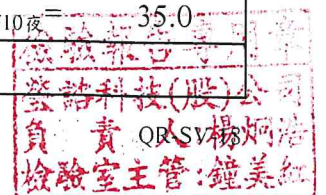 10夜= 35.0
檢驗報告專用章
瑩諮科技(股)公司
負責人:楊炯浩
QR-SV-18
檢驗室主管:鐘美紅